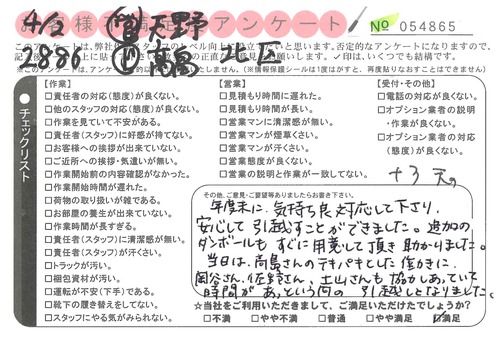 お客様 アンケート
4/2
㊢天野
No 054865
2886
高畠 北区
【作業】
□責任者の対応(態度)が良くない。
□他のスタッフの対応(態度)が良くない。
□作業を見ていて不安がある。
□責任者(スタッフ)に好感が持てない。
□お客様への挨拶が出来ていない。
□ご近所への挨拶・気遣いが無い。
□作業開始前の内容確認がなかった。
□作業開始時間が遅れた。
□荷物の取り扱いが雑である。
□お部屋の養生が出来ていない。
□作業時間が長すぎる。
□責任者(スタッフ)に清潔感が無い。
□責任者(スタッフ)が汗くさい。
□トラックが汚い。
□梱包資材が汚い。
□運転が不安(下手)である。
□靴下の履き替えをしてない。
□スタッフにやる気がみられない。
【営業】
□見積もり時間に遅れた。
□見積もり時間が長い。
□営業マンに清潔感が無い。
□営業マンが煙草くさい。
□営業マンが汗くさい。
□営業態度が良くない。
□営業の説明と作業が一致してない。
【受付・その他】
□電話の対応が良くない。
□オプション業者の説明
・作業が良くない。
□オプション業者の対応
(態度)が良くない。
チェックリスト
その他、ご意見・ご要望等ありましたらお書き下さい。
年度末に、気持ち良く対応して下さり、
安心して引越すことができました。追加の
ダンボールもすぐに用意して頂き助かりました。
当日は、高畠さんのテキパキとした働きに、
岡谷さん、佐野さん、土山さんも協力しあっていて
時間があっという間の引越しとなりました。
☆当社をご利用いただきまして、ご満足いただけたでしょうか?
□不満 □やや不満 □普通 □やや満足 ☑満足